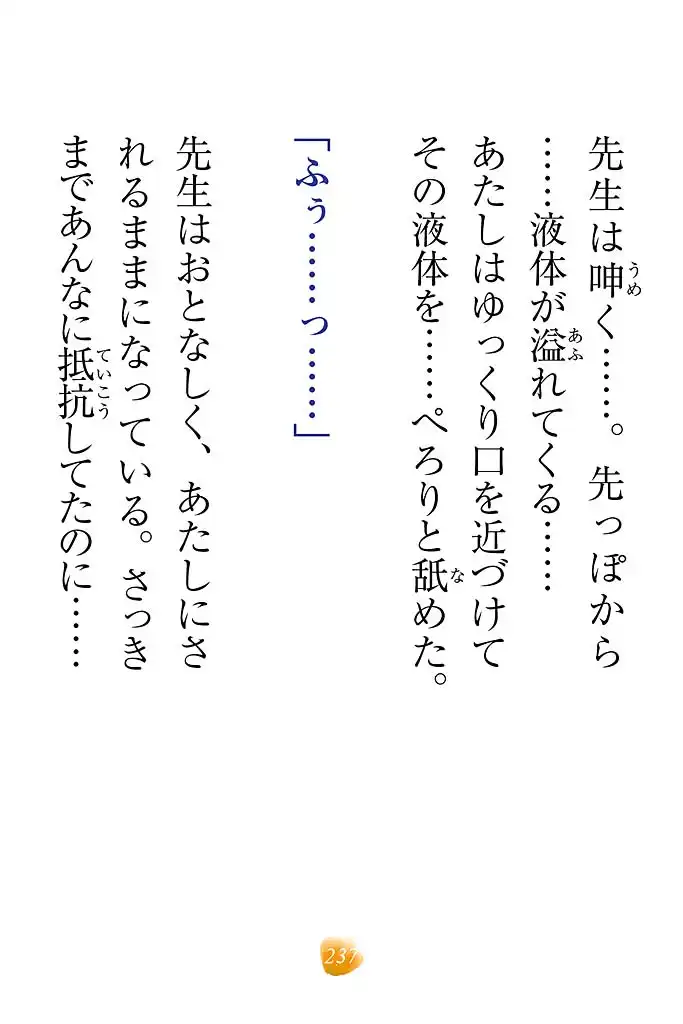 先生は呻く……。先っぽから
……液体が溢れてくる……
あたしはゆっくり口を近づけて
その液体を……ぺろりと舐めた。
「ふぅ……っ……」
先生はおとなしく、あたしにさ
れるままになっている。さっき
まであんなに抵抗してたのに……
237